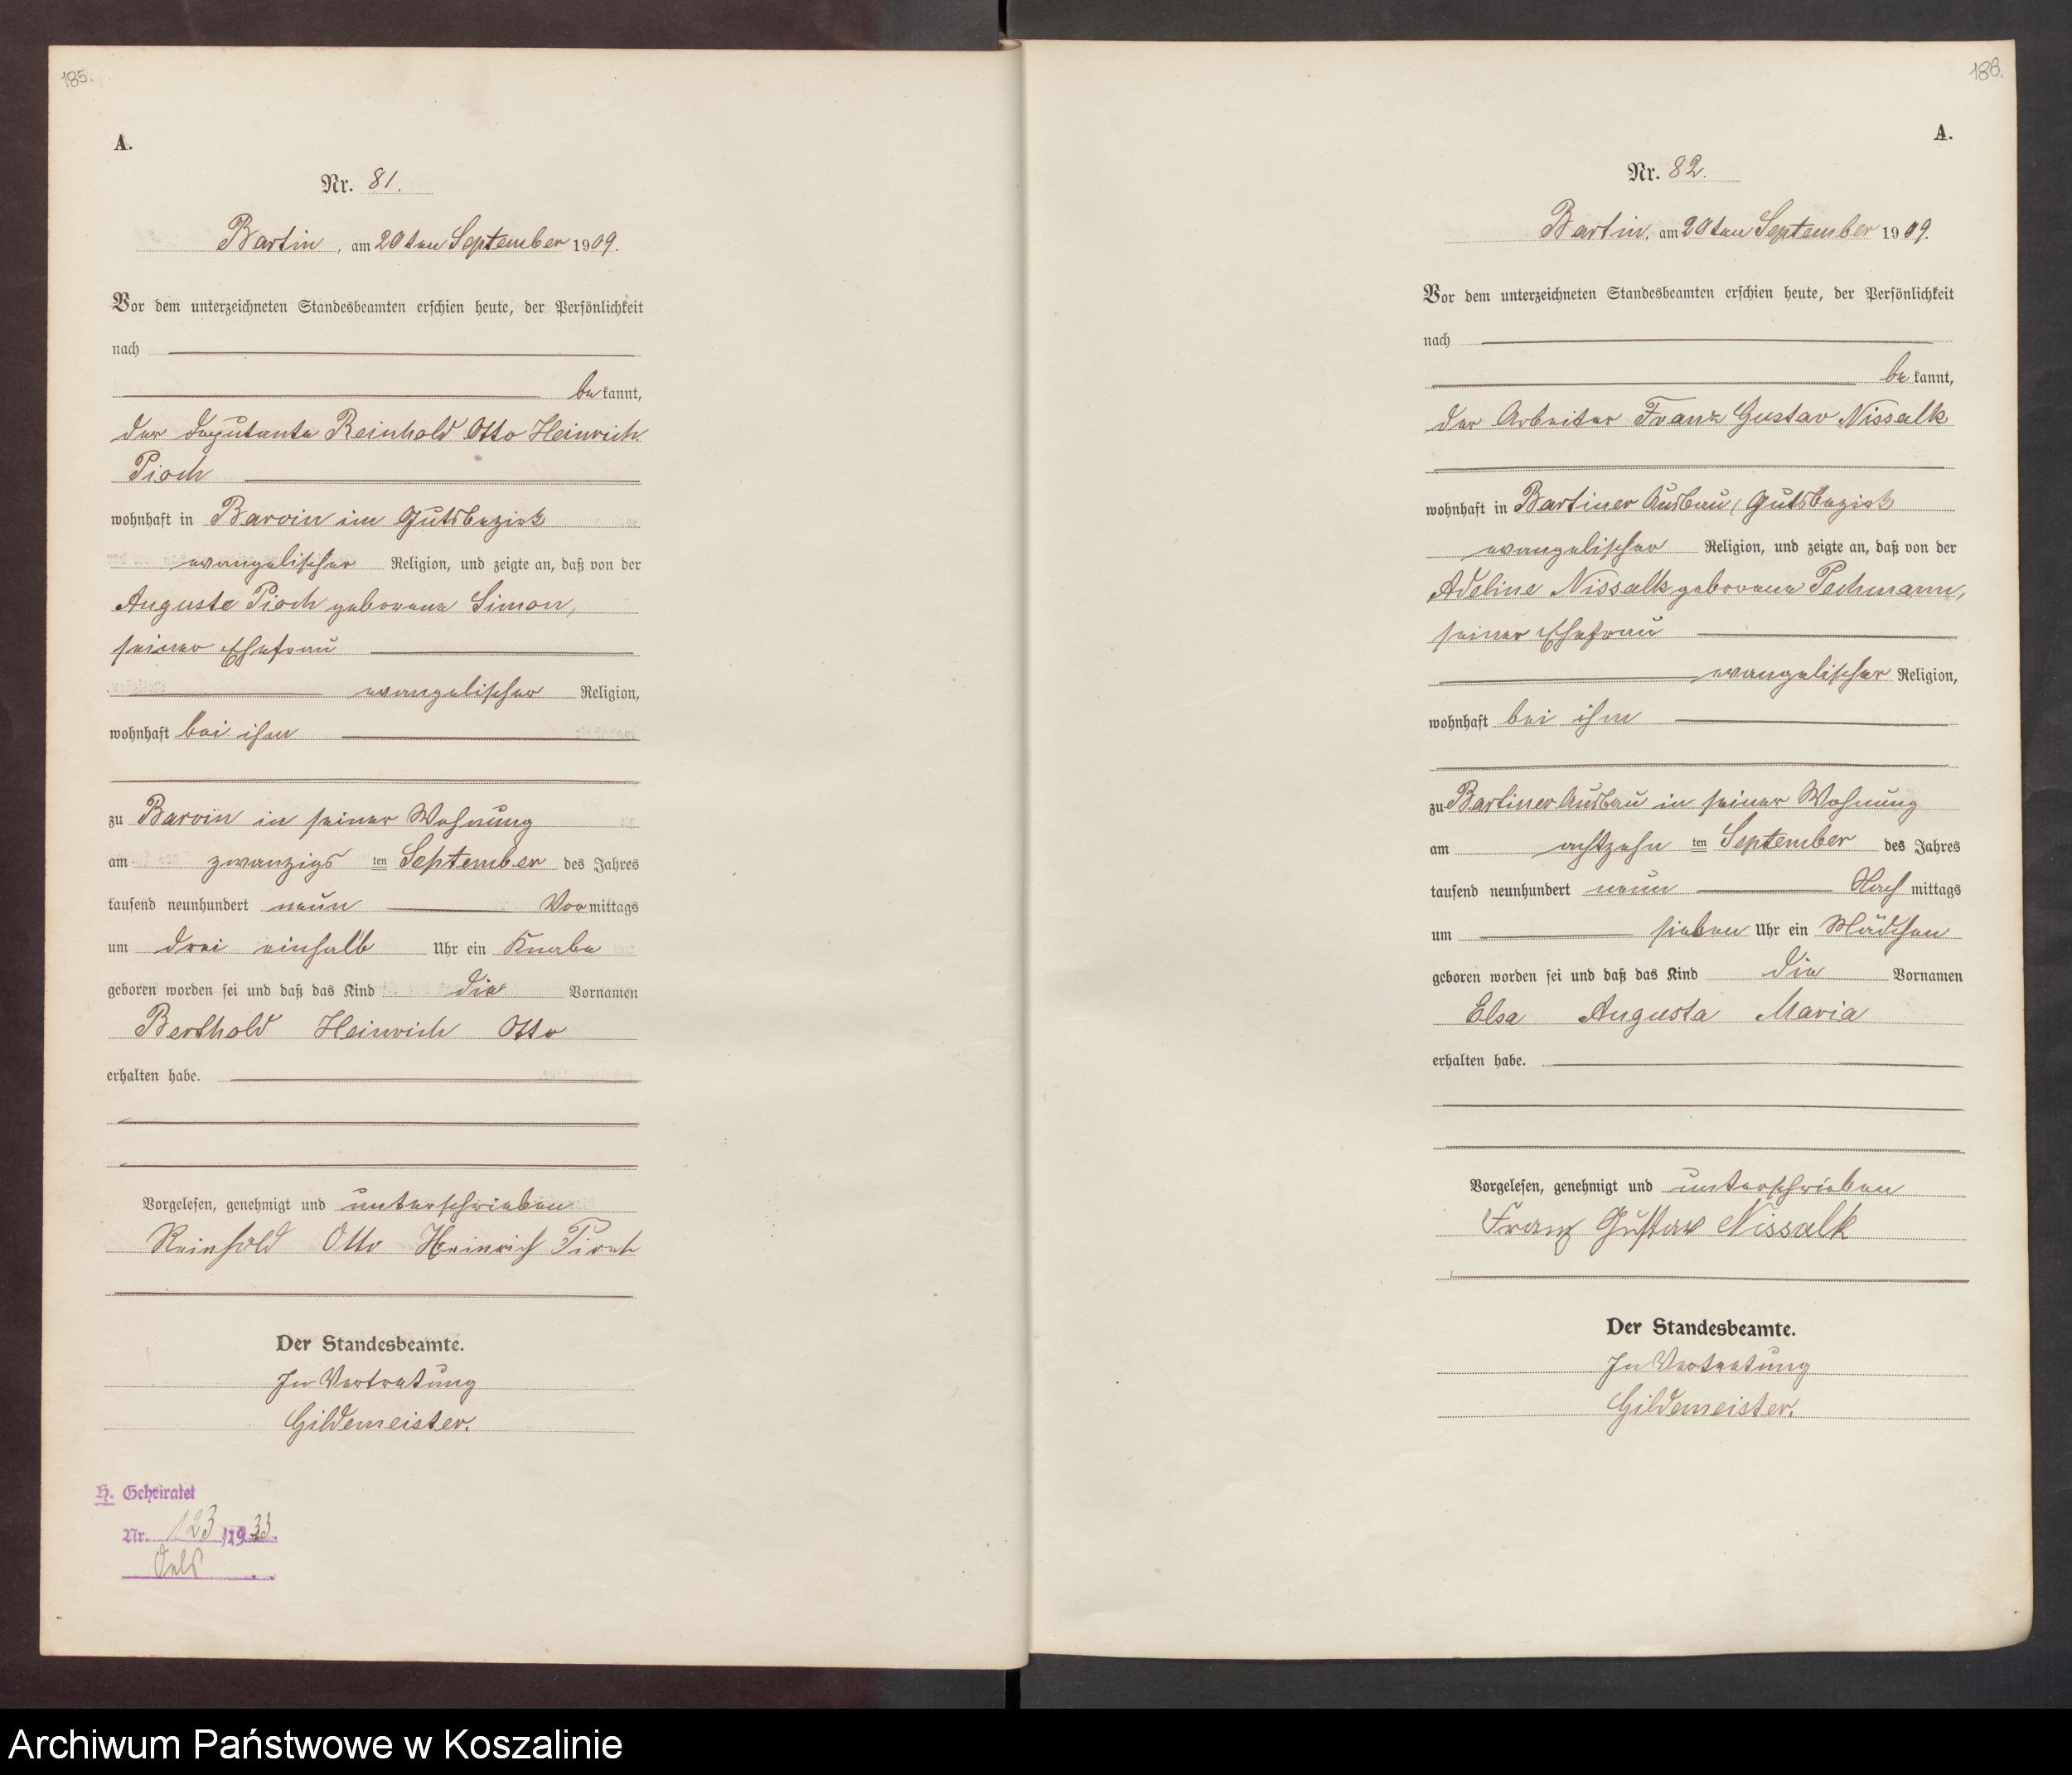 185.
A.
Nr. 81.
Bartin, am 20ten September 1909.
Vor dem unterzeichneten Standesbeamten erschien heute, der Persönlichkeit
nach
be kannt,
der Deputante Reinhold Otto Heinrich
Pioch
wohnhaft in Barvin im Gutsbezirk
evangelischer Religion, und zeigte an, daß von der
Auguste Pioch geborene Simon,
seiner Ehefrau
evangelischer Religion,
wohnhaft bei ihm
zu Barvin in seiner Wohnung
am zwanzigs ten September des Jahres
tausend neunhundert neun Vor mittags
um drei einhalb Uhr ein Knabe
geboren worden sei und daß das Kind die Vornamen
Berthold Heinrich Otto
erhalten habe.
Vorgelesen, genehmigt und unterschrieben
Reinhold Otto Heinrich Pioch
Der Standesbeamte.
In Vertretung
Gildemeister.
H. Geheiratet
Nr. 123/1933
186.
A.
Nr. 82.
Bartin, am 20ten September 1909.
Vor dem unterzeichneten Standesbeamten erschien heute, der Persönlichkeit
nach
be kannt,
der Arbeiter Franz Gustav Nissalk
wohnhaft in Bartiner Ausbau, Gutsbezirk
evangelischer Religion, und zeigte an, daß von der
Adeline Nissalk geborene Pechmann,
seiner Ehefrau
evangelischer Religion,
wohnhaft bei ihm
zu Bartiner Ausbau in seiner Wohnung
am achtzehn ten September des Jahres
tausend neunhundert neun Nach mittags
um sieben Uhr ein Mädchen
geboren worden sei und daß das Kind die Vornamen
Elsa Augusta Maria
erhalten habe.
Vorgelesen, genehmigt und unterschrieben
Franz Gustav Nissalk
Der Standesbeamte.
In Vertretung
Gildemeister.
Archiwum Państwowe w Koszalinie